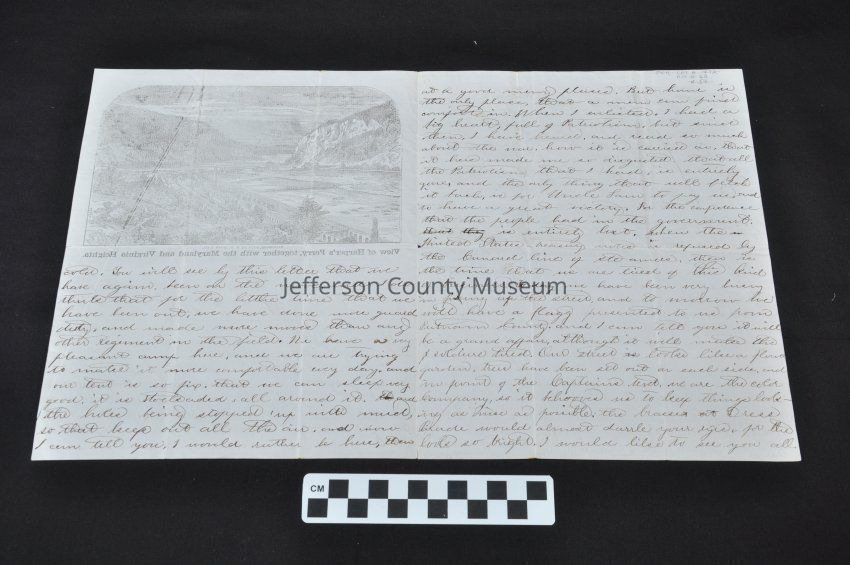 View of Harper's Ferry, together with the Maryland and Virginia Heights
cold. You will see by this letter that we
have again, been on the
think that for the little time that we
have been out, we have done more guard
duty, and made more moves than any
other regiment in the field. We have a very
pleasant camp here, and we are trying
to make it more comfortable every day, and
our tent is so fix, that we can sleep very
good, it is stockaded, all around it. and
the holes being stopped up with mud,
so that keep out all the air, and now
I can tell you, I would rather be here, than
at a good many places. But home is
the only place, that a man can find
comfort in. When I enlisted, I had a
big heart, full of Patriotism, but since
then, I have heard, and read so much
about the war, how it is carried on, that
it has made me so disgusted that all
the Patriotism that I had, is entirely
gone, and the only thing that will fetch
it back, is for Uncle Sam to pay us, and
to have a great victory. For the confidence
that the people had in the government
is entirely lost, when the
United States treasury notes is refused by
the Cunard line of steamers, then is
the time that we are tired of this kind
we have been very busy
in fixing up the street, and to morrow we
will have a flagg presented to us from
Putnam County, and I can tell you it will
be a grand affair, although it will make the
soldiers tired. Our street is looks like a flower
garden, trees have been set out on each side, and
in front of the Captains tent, we are the color
company, so it behooves us to keep things look-
ing as nice as posible, the brasses at Dress
Parade would almost dazzle your eyes, for they
looks so bright. I would like to see you all
Jefferson County Museum
CM